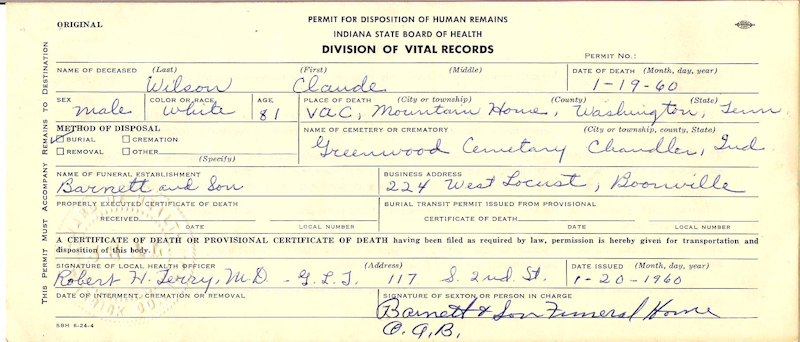 ORIGINAL
PERMIT FOR DISPOSITION OF HUMAN REMAINS
INDIANA STATE BOARD OF HEALTH
DIVISION OF VITAL RECORDS
PERMIT NO.:
THIS PERMIT MUST ACCOMPANY REMAINS TO DESTINATION
NAME OF DECEASED (Last) (First) (Middle) DATE OF DEATH (Month, day, year)
Wilson Claude 1-19-60
SEX COLOR OR RACE AGE PLACE OF DEATH (City or township) (County) (State)
male white 81 VAC, Mountain Home, Washington, Tenn
METHOD OF DISPOSAL NAME OF CEMETERY OR CREMATORY (City or township, county, State)
BURIAL CREMATION Greenwood Cemetary Chandler, Ind
REMOVAL OTHER
(Specify)
NAME OF FUNERAL ESTABLISHMENT BUSINESS ADDRESS
Barnett and Son 224 West Locust, Boonville
PROPERLY EXECUTED CERTIFICATE OF DEATH BURIAL TRANSIT PERMIT ISSUED FROM PROVISIONAL
RECEIVED CERTIFICATE OF DEATH
DATE LOCAL NUMBER DATE LOCAL NUMBER
A CERTIFICATE OF DEATH OR PROVISIONAL CERTIFICATE OF DEATH having been filed as required by law, permission is hereby given for transportation and
disposition of this body.
SIGNATURE OF LOCAL HEALTH OFFICER (Address) DATE ISSUED (Month, day, year)
Robert H. Terry, M.D - G.L.J. 117 S. 2nd. St. 1-20-1960
DATE OF INTERMENT, CREMATION OR REMOVAL SIGNATURE OF SEXTON OR PERSON IN CHARGE
Barnett & Son Funeral Home
O.G.B.
SBH 6-24-4